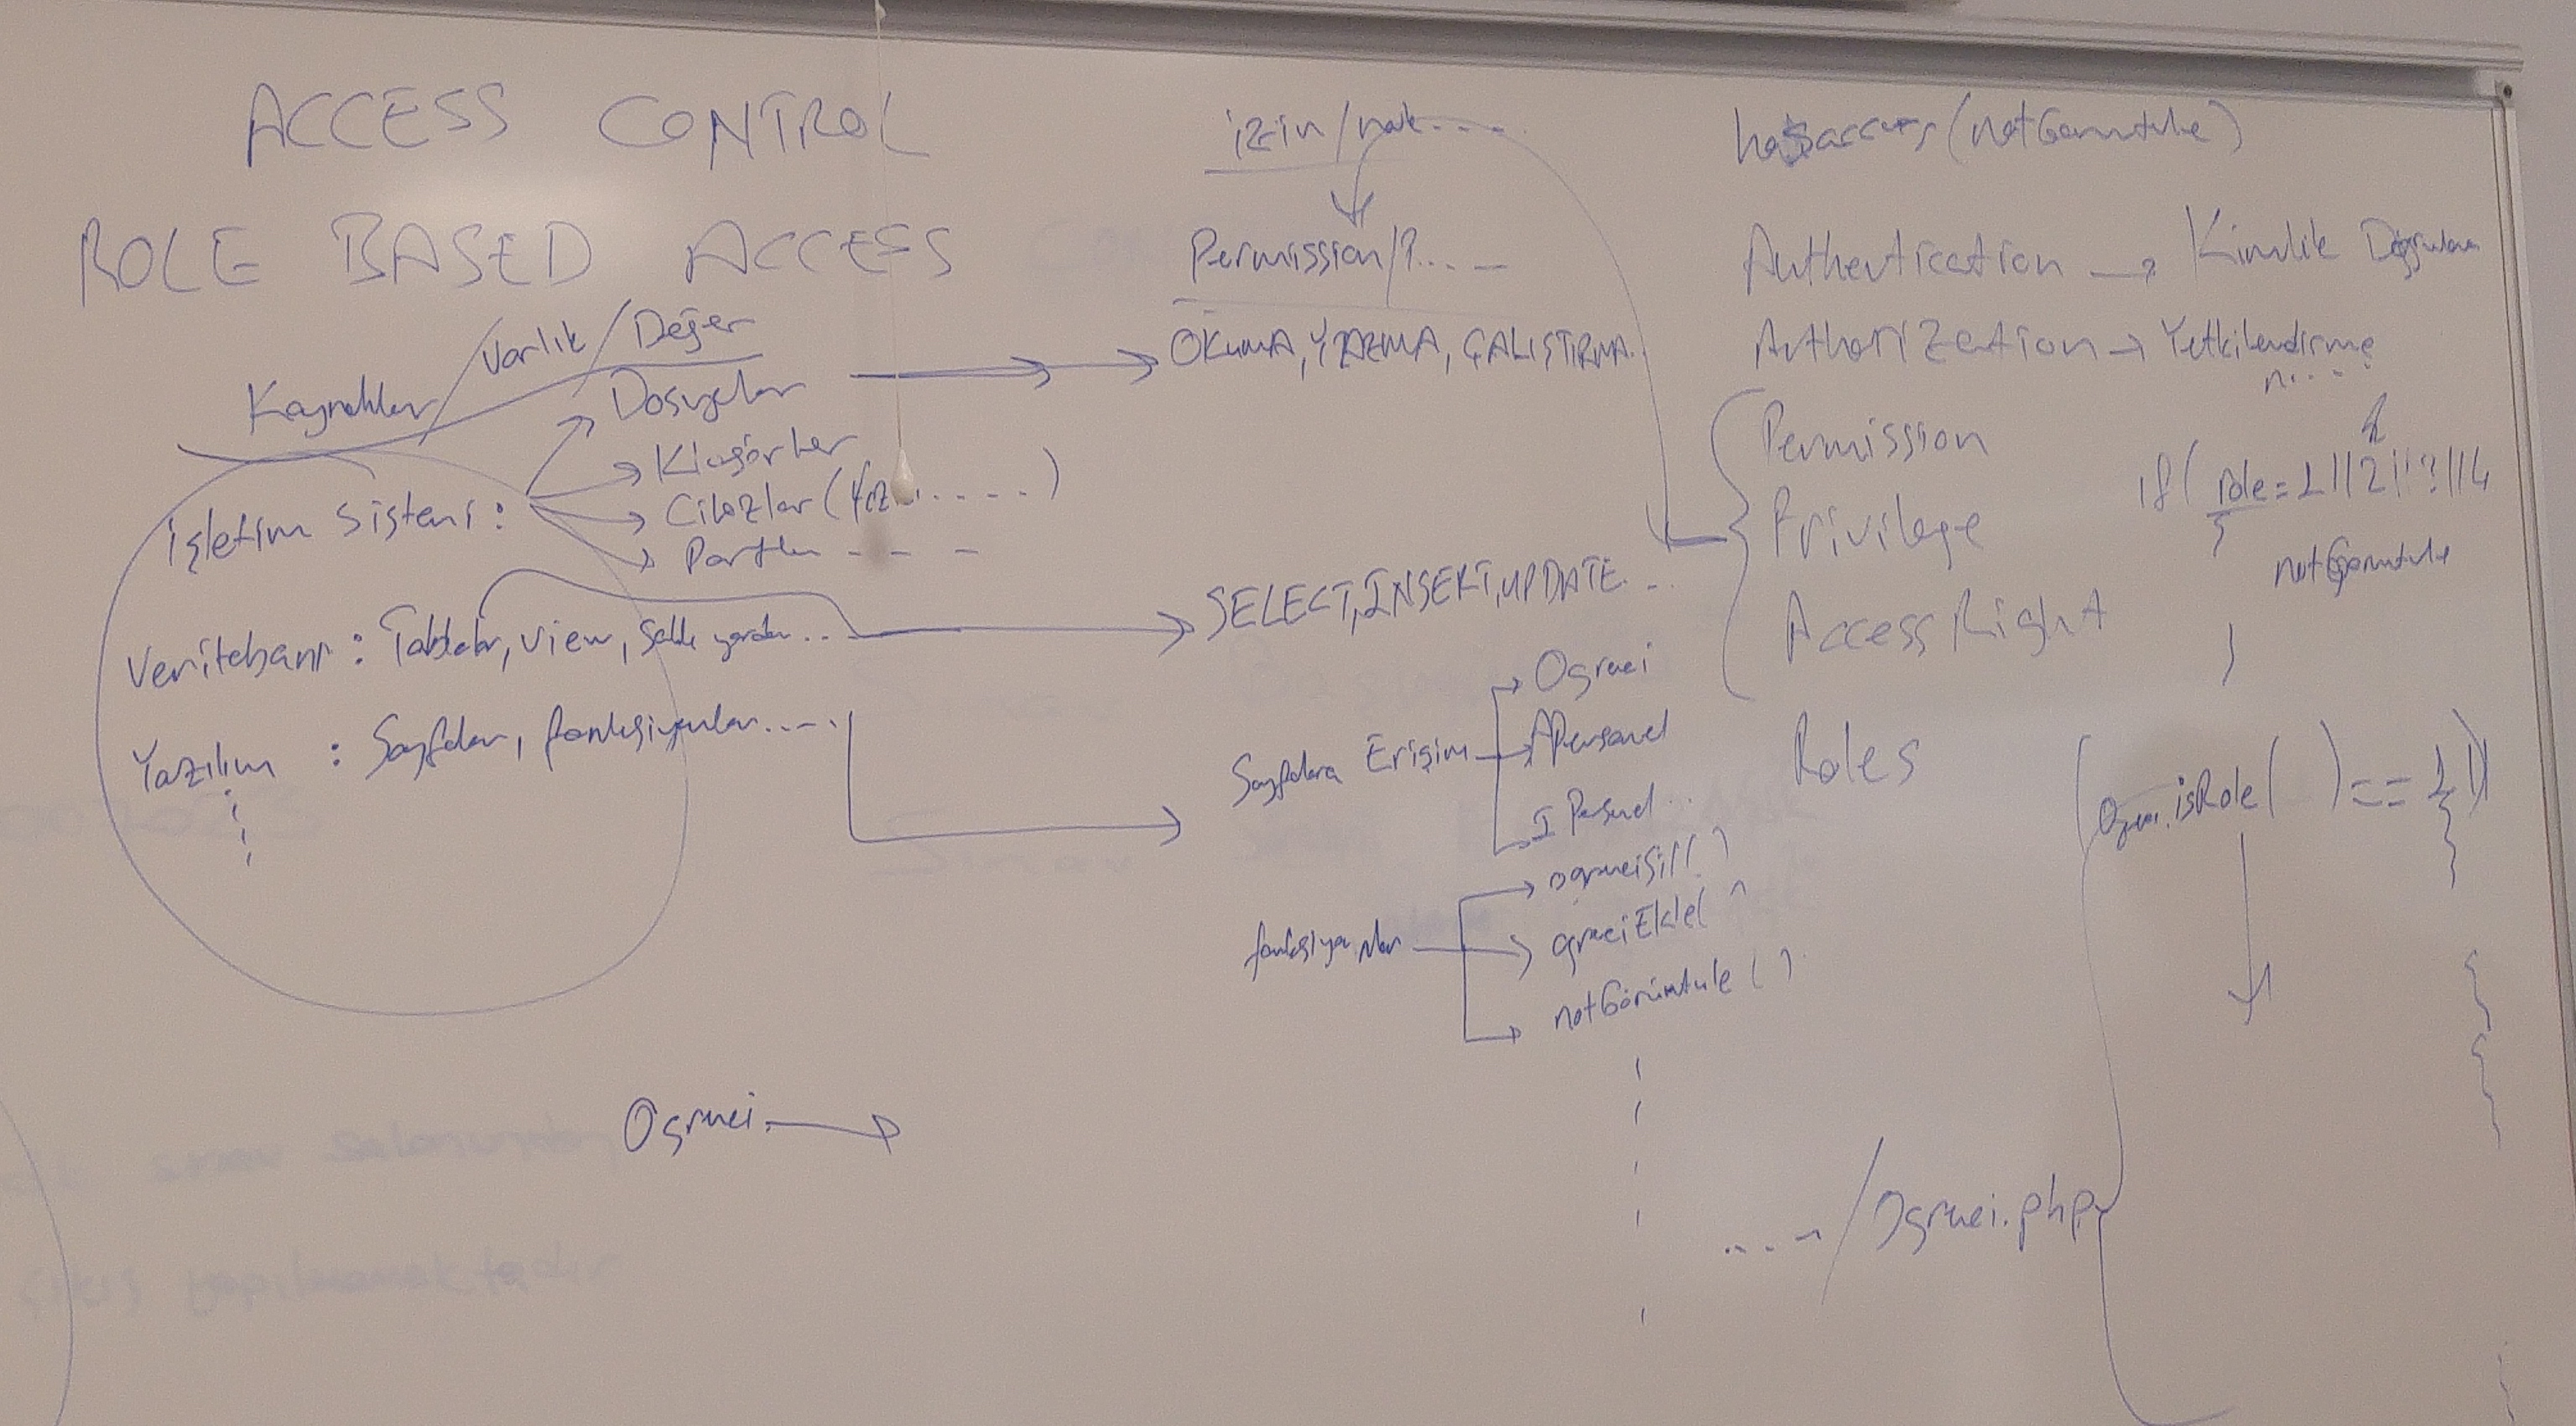 ACCESS CONTROL
ROLE BASED ACCESS
Kaynaklar / Varlık / Değer
İşletim Sistemi :
Dosyalar
Klasörler
Cihazlar (Yaz.....)
Portlar - - -
Veritabanı : Tablolar, View, Saklı yordam...
Yazılım : Sayfalar, fonksiyonlar.....
Ogrnci
izin / hak....
Permission/?....
OKUMA, YAZMA, ÇALIŞTIRMA..
SELECT, INSERT, UPDATE...
Sayfalara Erişim
Ogrnci
APersonel
I Persnel..
fonksiyonlar
ogrnciSil( )
ogrnciEkle( )
notGörüntüle ( )
hasaccess (notGoruntule)
Authentication → Kimlik Doğrulama
Authorization → Yetkilendirme
n....
Permission
Privilege
Access Right
Roles
if ( role = 1||2||?||4
{
notGoruntule
}
(Ogrnci.isRole( ) == 1)
{
..../Ogrnci.php